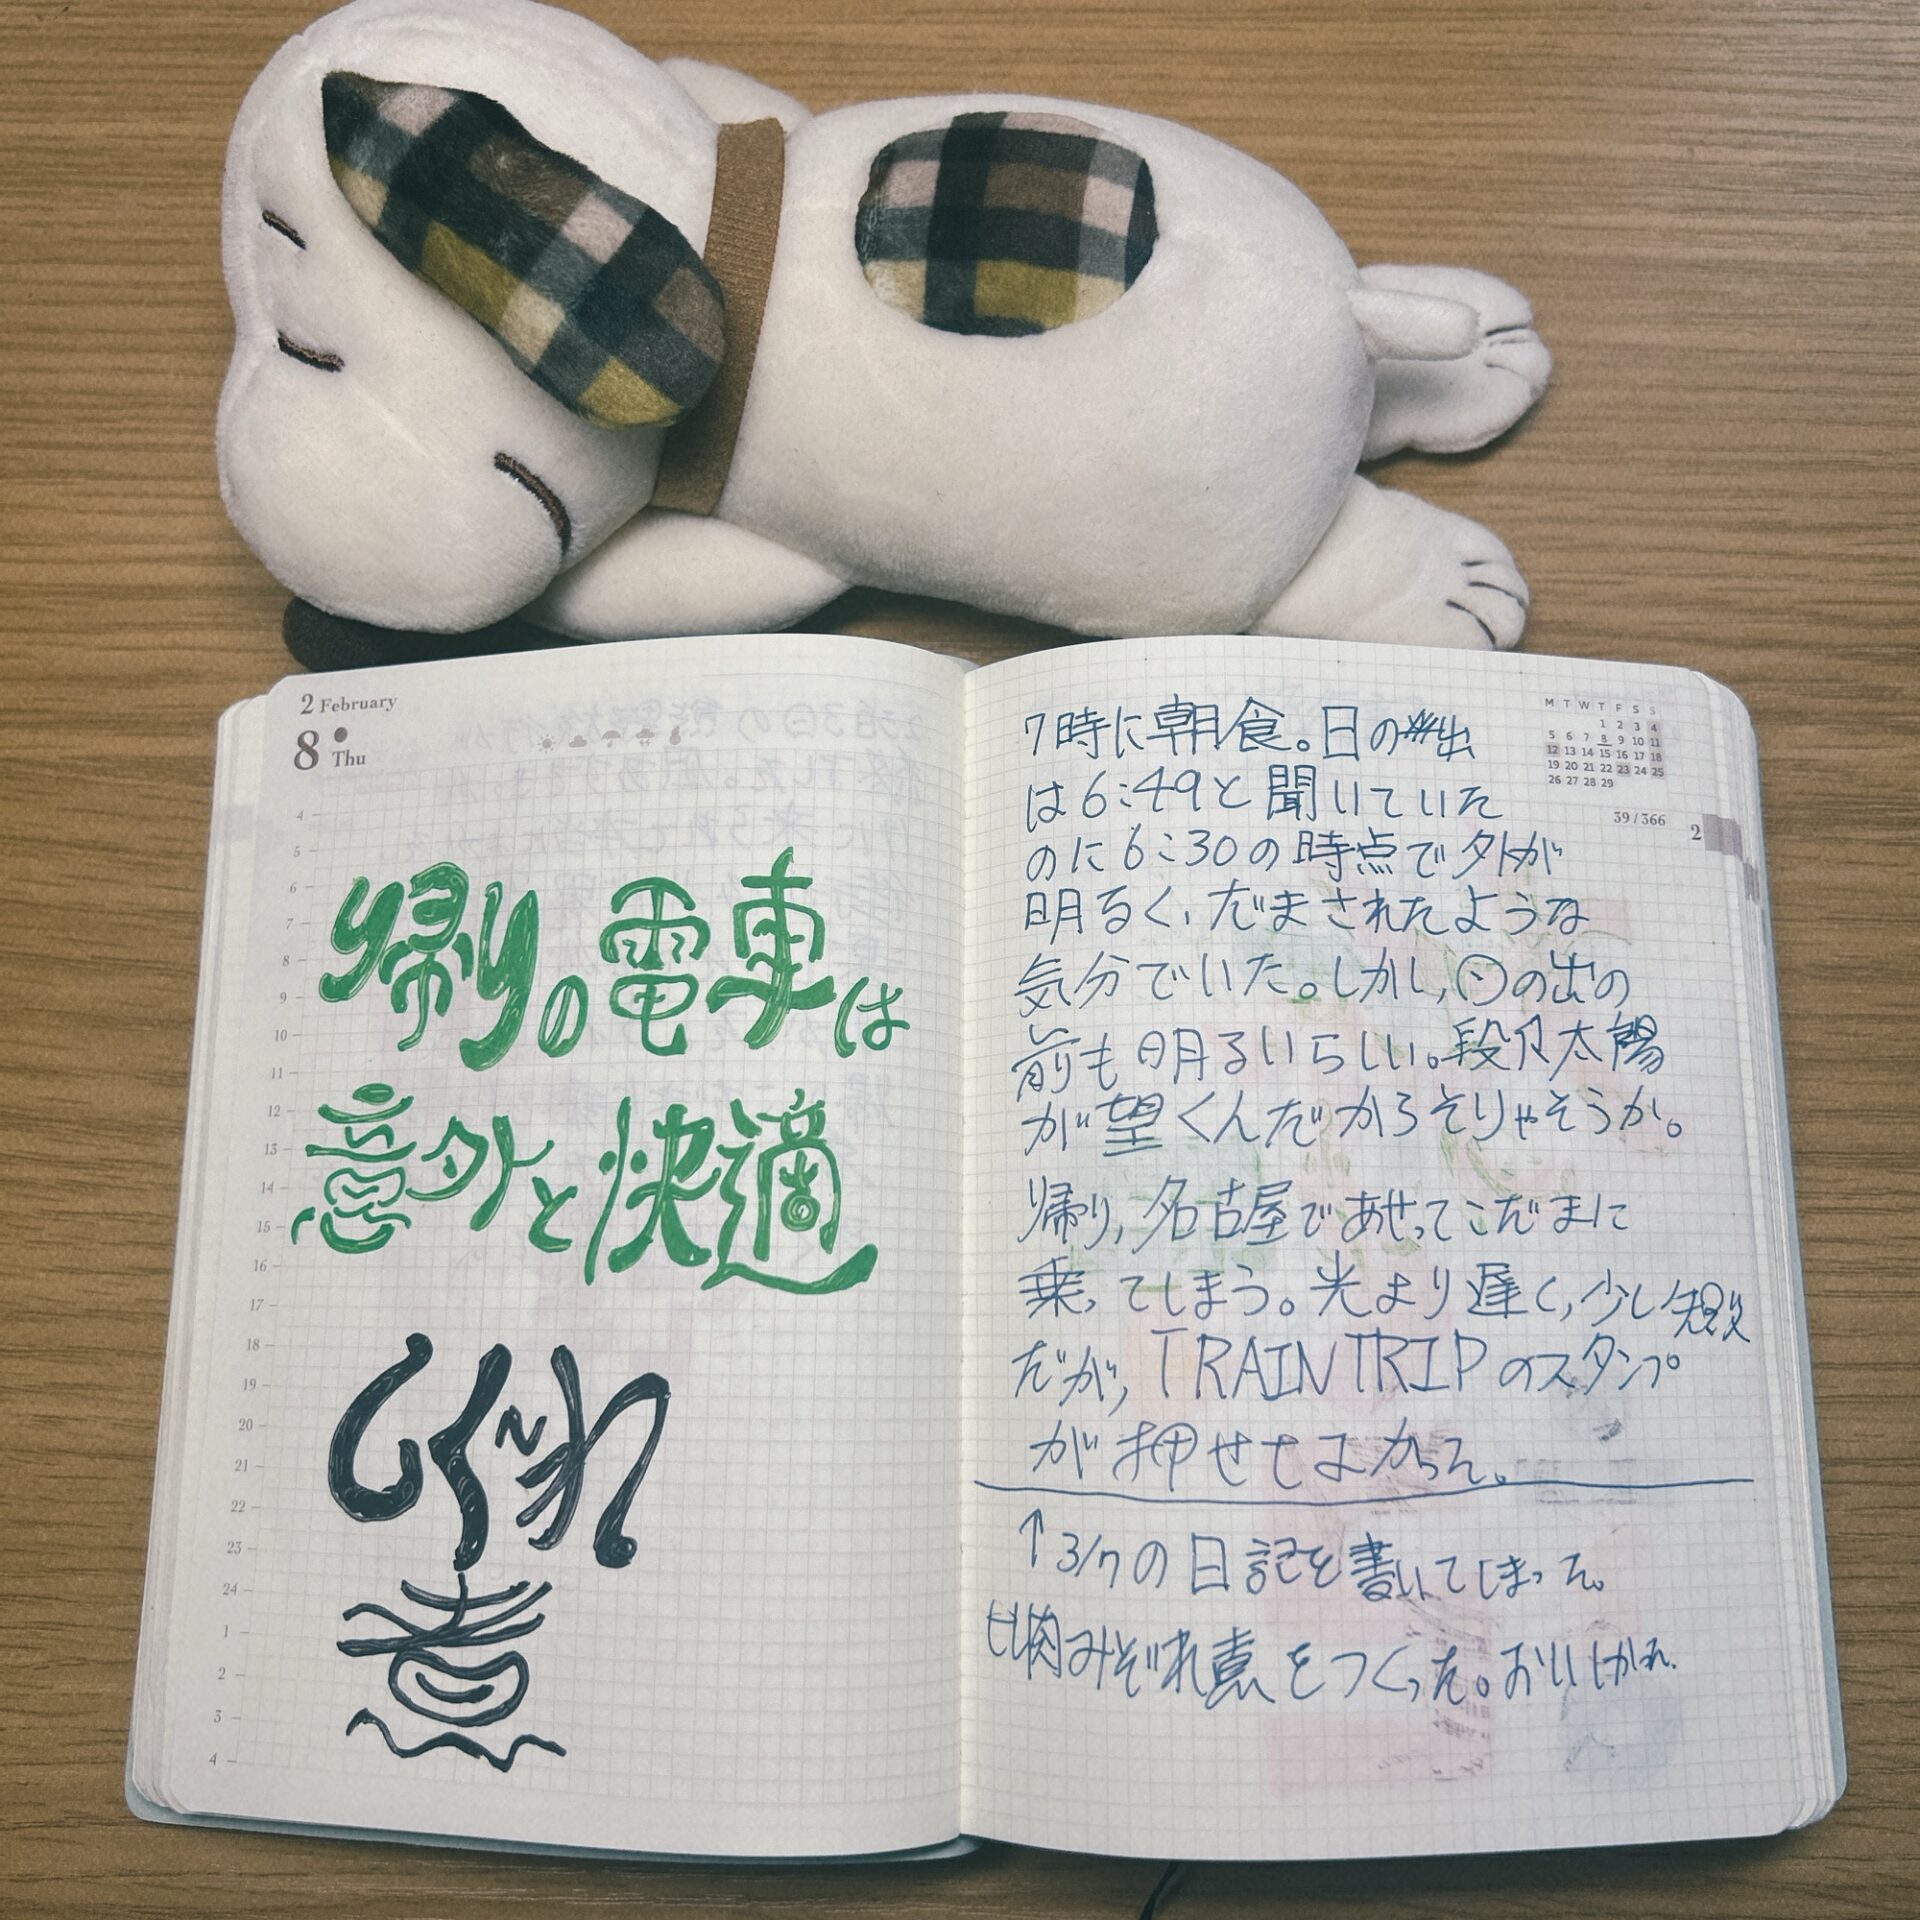 2 February
8 Thu
4
5
6
7
8
9
10
11
12
13
14
15
16
17
18
19
20
21
22
23
24
1
2
3
4
帰りの電車は
意外と快適
みぞれ
煮
M T W T F S S
1 2 3 4
5 6 7 8 9 10 11
12 13 14 15 16 17 18
19 20 21 22 23 24 25
26 27 28 29
39/366
2
7時に朝食。日の出
は6:49と聞いていた
のに6:30の時点で外が
明るく、だまされたような
気分でいた。しかし、日の出の
前も明るいらしい。段々太陽
が望くんだからそりゃそうか。
帰り、名古屋であせってこだまに
乗ってしまう。光より遅く、少し残念
だが、TRAIN TRIPのスタンプ
が押せてよかった。
↑3/7の日記を書いてしまった。
肉みぞれ煮をつくった。おいしかった。